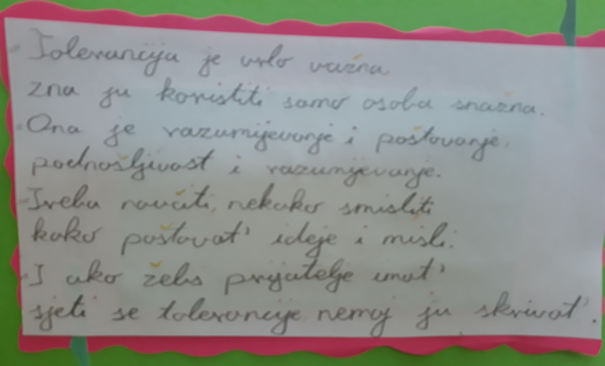 - Tolerancija je vrlo važna
zna ju koristiti samo osoba snažna.
- Ona je razumijevanje i poštovanje,
podnošljivost i razumijevanje.
- Treba naučiti, nekako smisliti
kako poštovat' ideje i misli.
- I ako želiš prijatelje imat'
sjeti se tolerancije nemoj ju skrivat'.